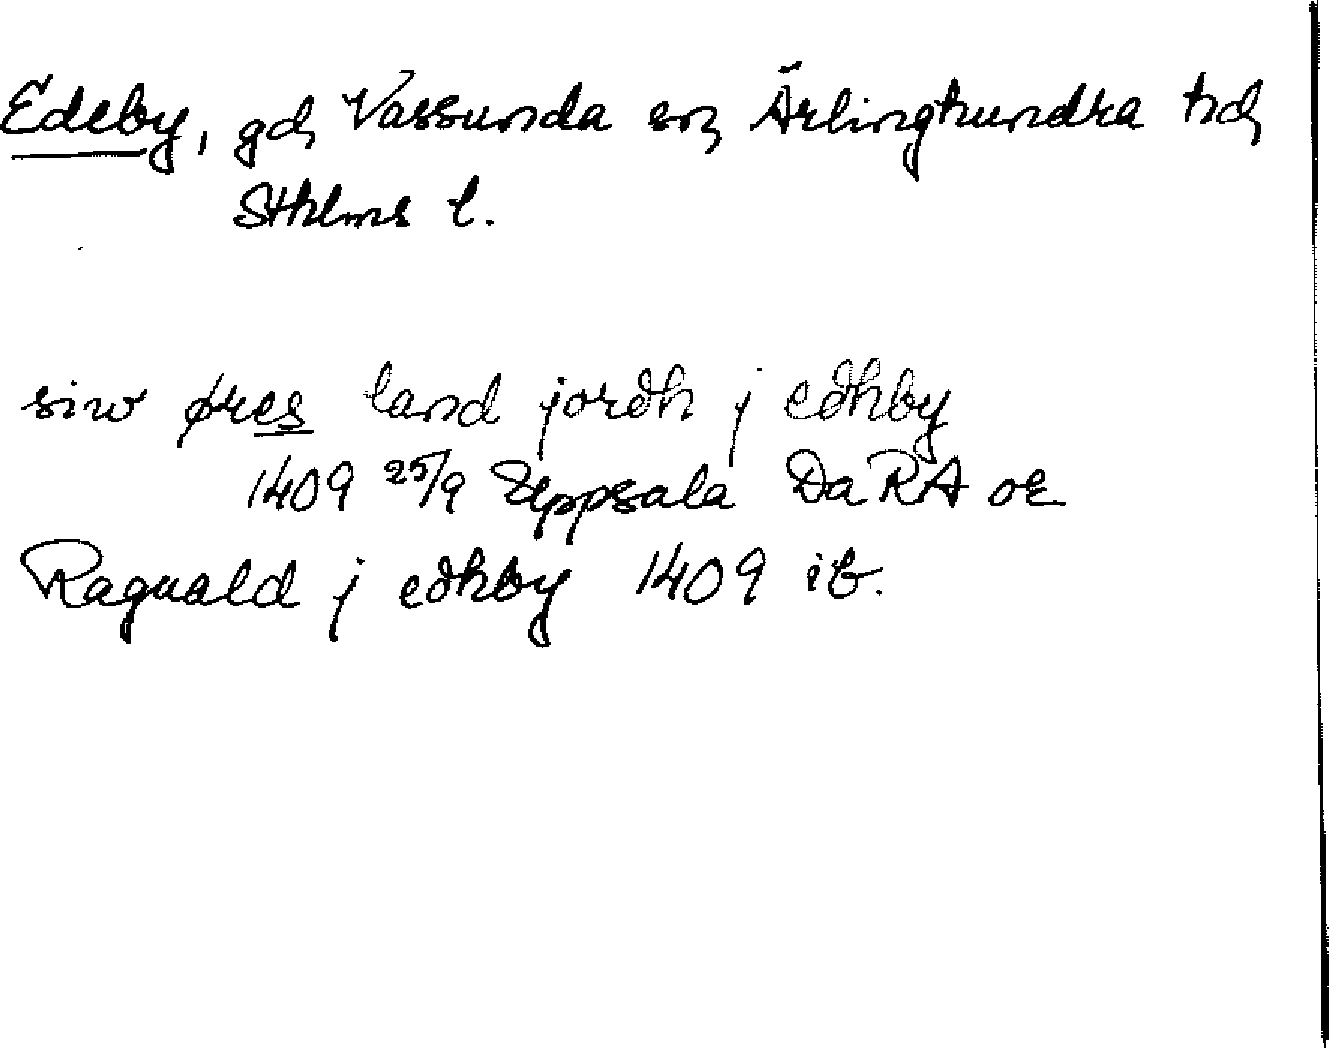 Edeby, gd, Vassunda sn, Ärlinghundra hd,
Sthlms l.
siw øres land jordh j edhby
1409 25/9 Uppsala Da RA or
Raguald j edhby 1409 ib.